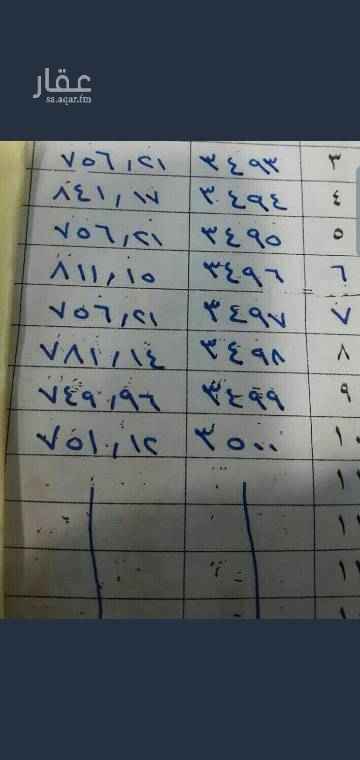 عقار
ss.aqar.fm
٣ ٣٤٩٣ ٧٥٦,٢١
٤ ٣٤٩٤ ٨٤١,١٧
٥ ٣٤٩٥ ٧٥٦,٢١
٦ ٣٤٩٦ ٨١١,١٥
٧ ٣٤٩٧ ٧٥٦,٢١
٨ ٣٤٩٨ ٧٨١,١٤
٩ ٣٤٩٩ ٧٤٩,٩٦
١٠ ٣٥٠٠ ٧٥١,١٢